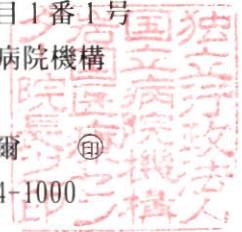 目1番1号
病院機構
爾 ㊞
4-1000
独立行政法人
国立病院機構